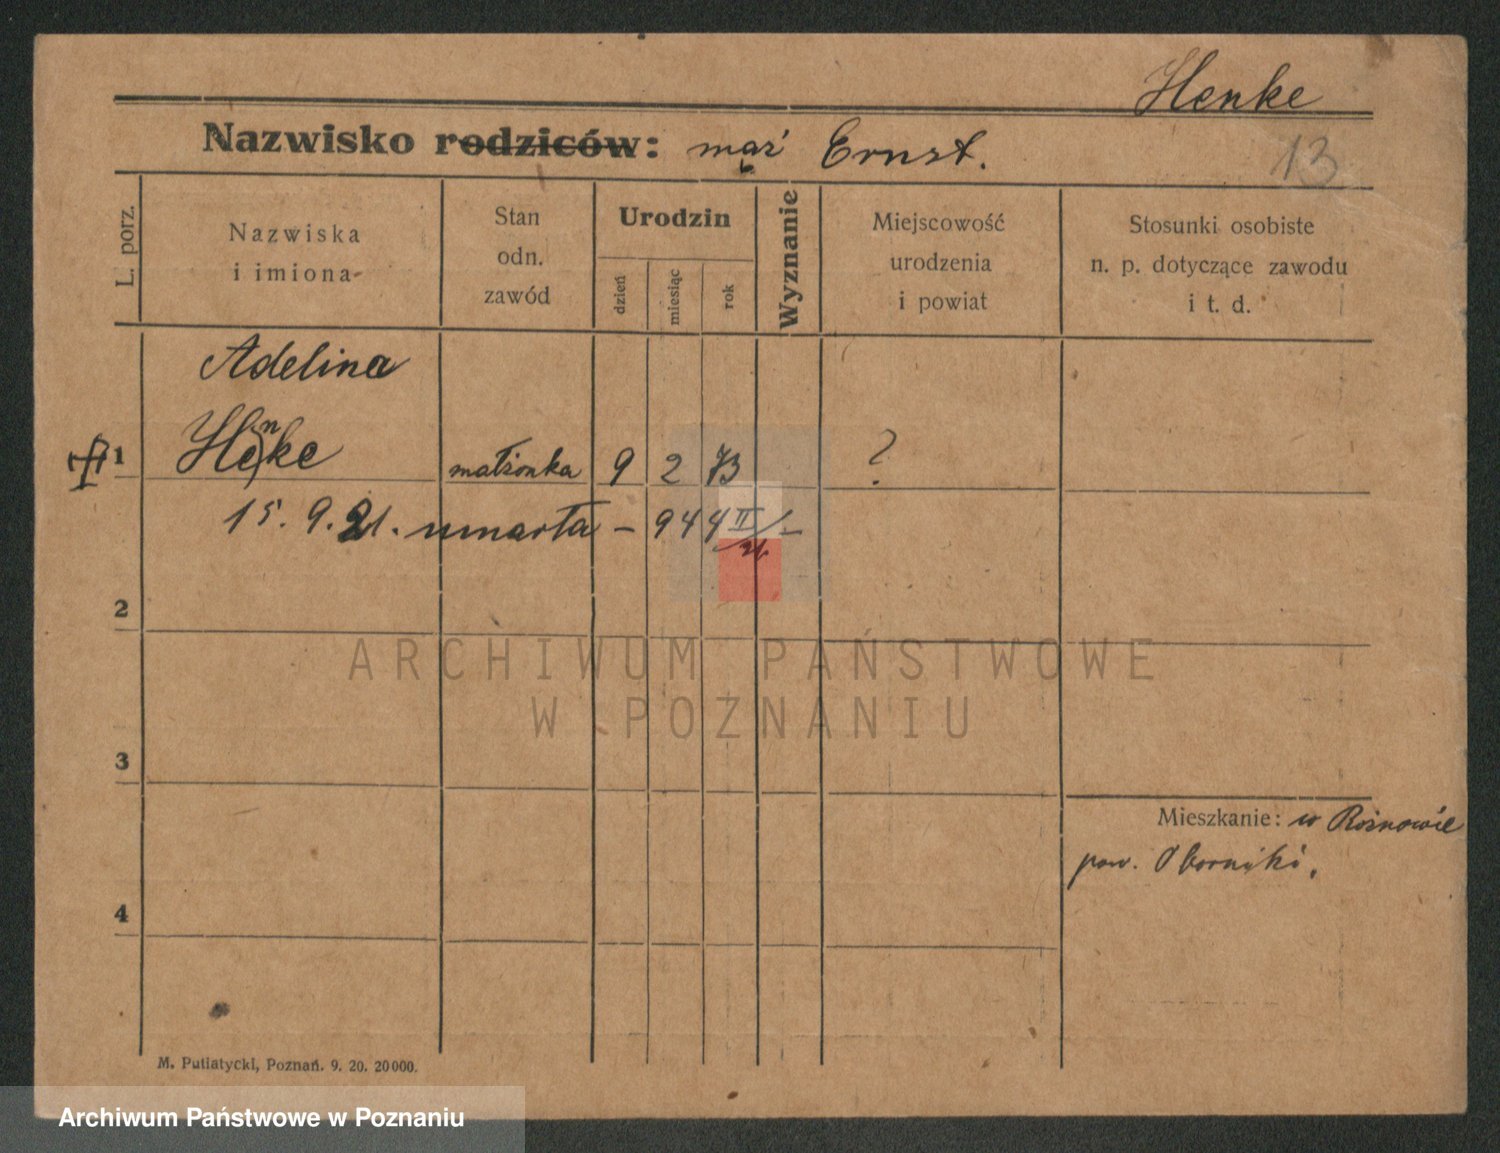 Henke
Nazwisko rodziców: mąż Ernst.
13
L. porz.
Nazwiska
i imiona
Stan
odn.
zawód
Urodzin
dzień
miesiąc
rok
Wyznanie
Miejscowość
urodzenia
i powiat
Stosunki osobiste
n. p. dotyczące zawodu
i t. d.
Adelina
1 Henke małżonka 9 2 73 ?
15. 9. 21. umarła – 944 II/21 –
2
ARCHIWUM PAŃSTWOWE
W POZNANIU
3
Mieszkanie: w Rożnowie
pow. Oborniki.
4
M. Putiatycki, Poznań. 9. 20. 20000.
Archiwum Państwowe w Poznaniu